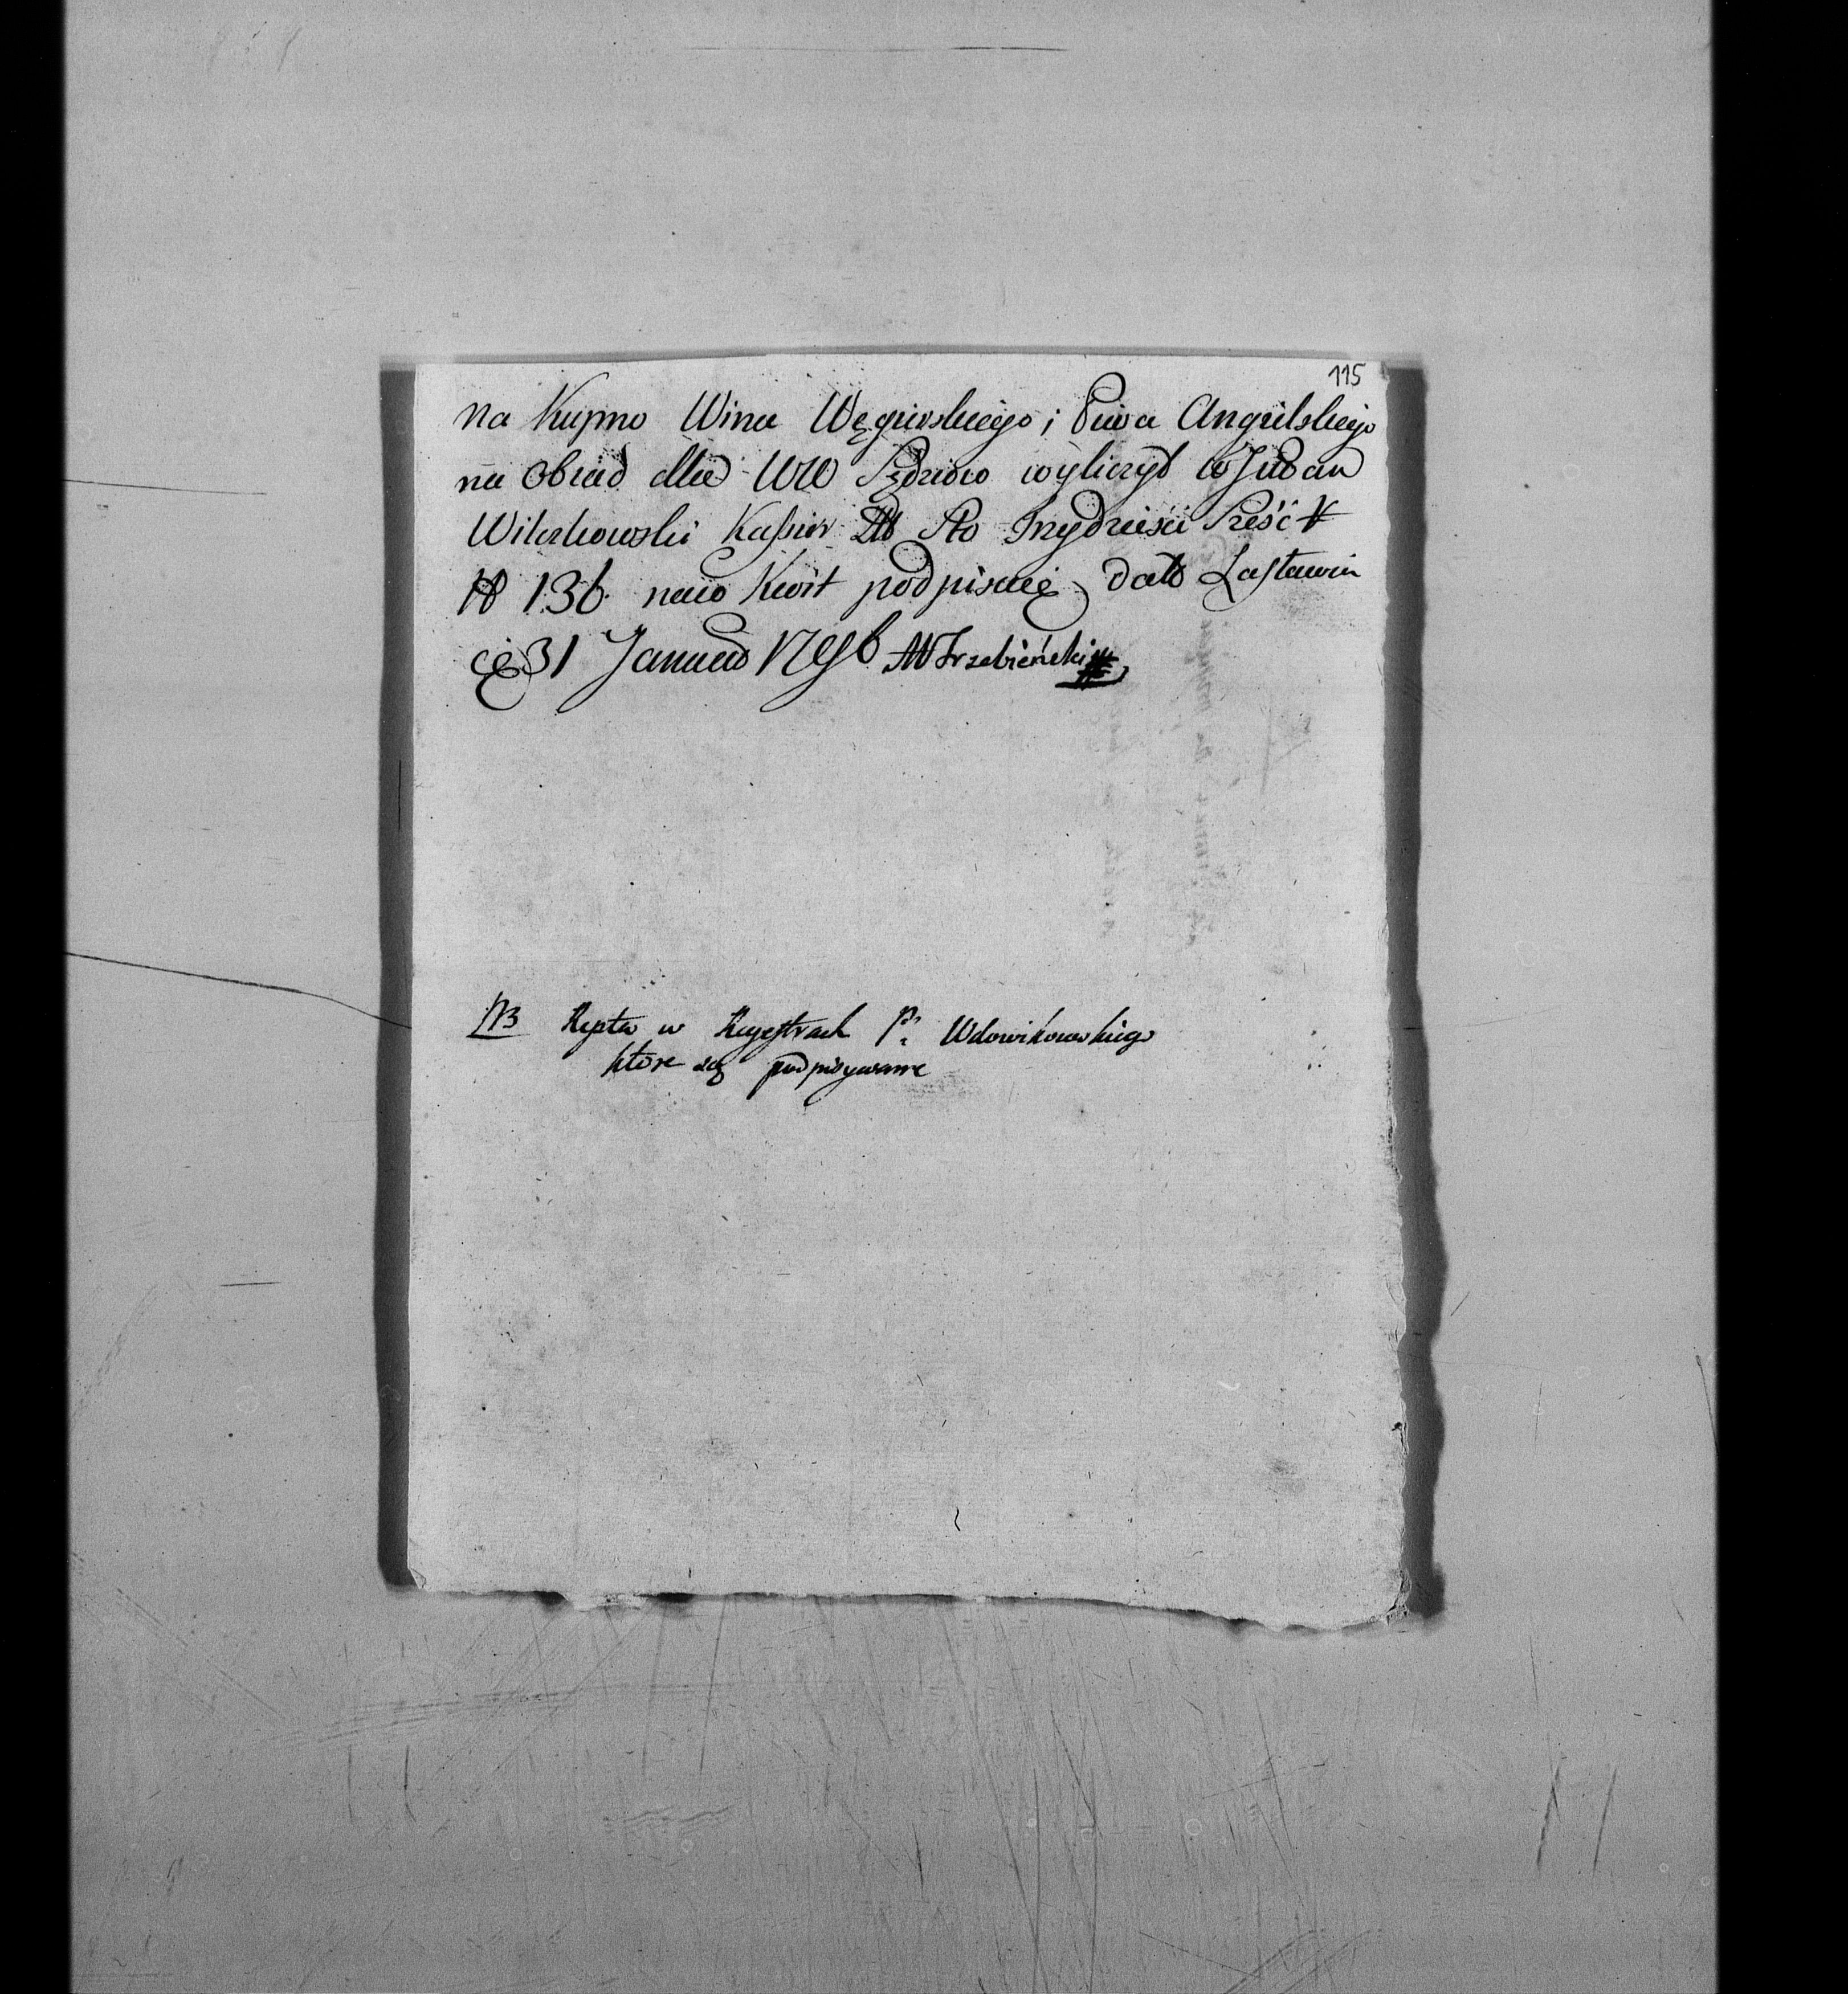 115
Na Kupno Wina Węgierskiego i Piwa Angielskiego
na obiad dla WW Sędziow wyliczył W Jwan
Witwkowski Kassier Sto Trzydzieści Sześć
136 na co Kwit podpisuię datt Zasławiu
31 Januarii 1796 Trzebieński
NB Reszta w Regestrach P. Wdowikowskiego
ktore są podpisywane